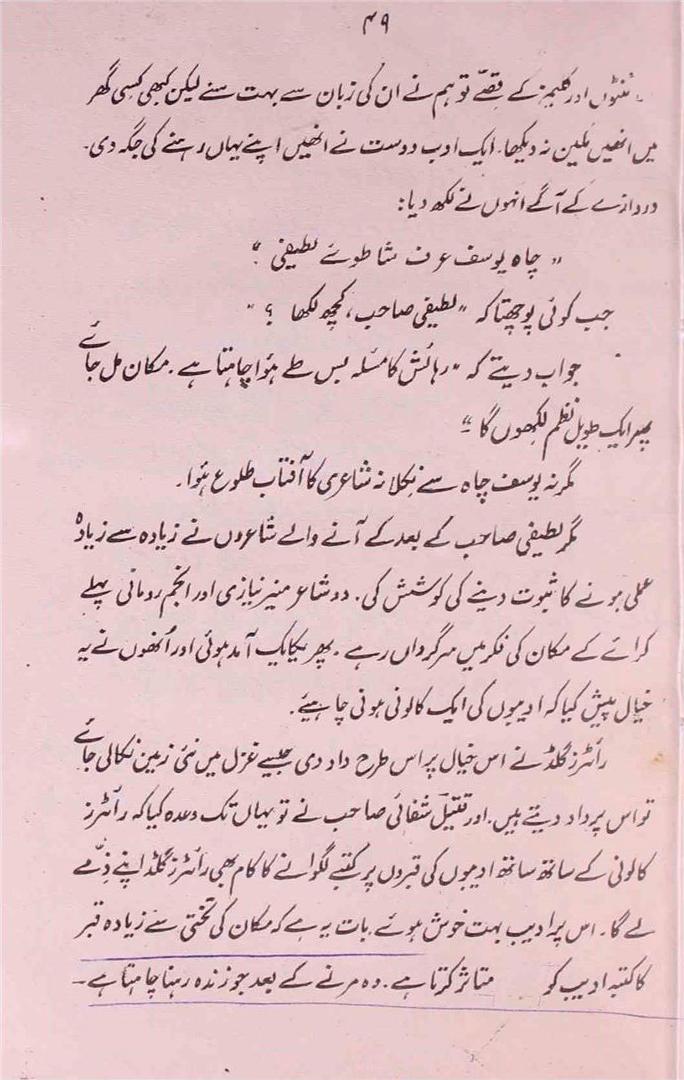 ۴۹
ئنٹوں اور کلیمز کے قصّے تو ہم نے ان کی زبان سے بہت سنے لیکن کبھی کسی گھر
میں انھیں مکین نہ دیکھا۔ ایک ادب دوست نے انھیں اپنے یہاں رہنے کی جگہ دی۔
دروازے کے آگے انہوں نے لکھ دیا:
"چاہ یوسف عرف شاطوئے لطیفی"
جب کوئی پوچھتا کہ "لطیفی صاحب، کچھ لکھا ؟"
جواب دیتے کہ "رہائش کا مسئلہ بس طے ہؤا چاہتا ہے۔ مکان مل جائے
پھر ایک طویل نظم لکھوں گا"۔
مگر نہ یوسف چاہ سے نکلا نہ شاعری کا آفتاب طلوع ہؤا۔
مگر لطیفی صاحب کے بعد کے آنے والے شاعروں نے زیادہ سے زیادہ
عملی ہونے کا ثبوت دینے کی کوشش کی۔ دو شاعر منیر نیازی اور انجم رومانی پہلے
کرائے کے مکان کی فکر میں سرگرداں رہے۔ پھر یکایک آمد ہوئی اور اُنھوں نے یہ
خیال پیش کیا کہ ادیبوں کی ایک کالونی ہونی چاہیئے۔
رائٹرز گلڈ نے اس خیال پر اس طرح داد دی جیسے غزل میں نئی زمین نکالی جائے
تو اس پر داد دیتے ہیں۔ اور قتیل شفائی صاحب نے تو یہاں تک وعدہ کیا کہ رائٹرز
کالونی کے ساتھ ساتھ ادیبوں کی قبروں پر کتبے لگوانے کا کام بھی رائٹرز گلڈ اپنے ذمّے
لے گا۔ اس پر ادیب بہت خوش ہوئے۔ بات یہ ہے کہ مکان کی تختی سے زیادہ قبر
کا کتبہ ادیب کو متاثر کرتا ہے۔ وہ مرنے کے بعد جو زندہ رہنا چاہتا ہے۔